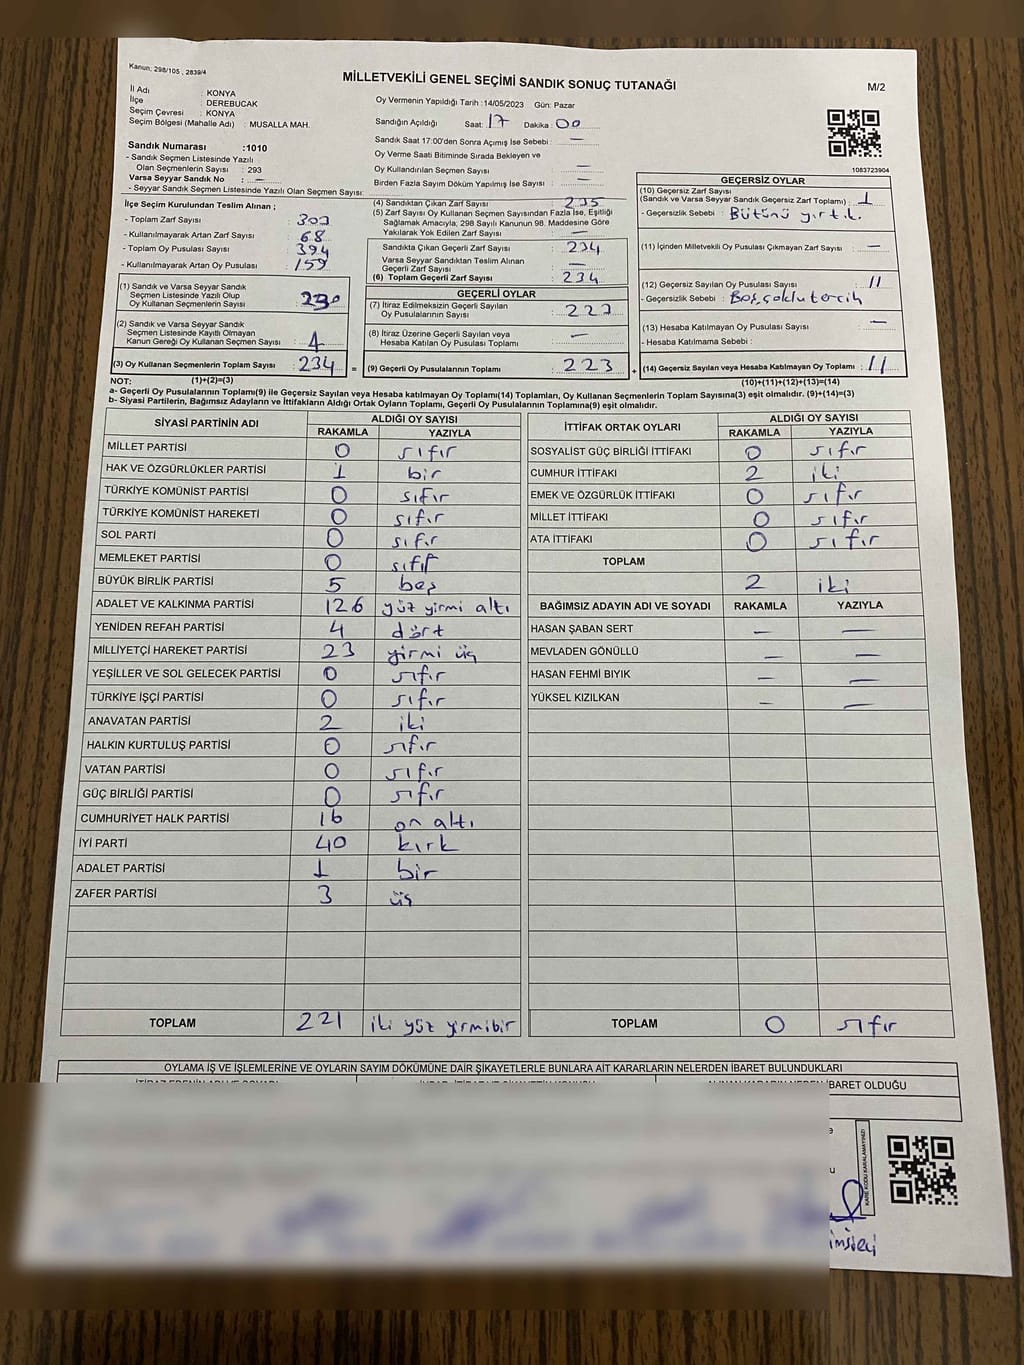 Kanun; 298/105 ; 2839/4
MİLLETVEKİLİ GENEL SEÇİMİ SANDIK SONUÇ TUTANAĞI
M/2
İl Adı : KONYA
İlçe : DEREBUCAK
Seçim Çevresi : KONYA
Seçim Bölgesi (Mahalle Adı) : MUSALLA MAH.
Oy Vermenin Yapıldığı Tarih :14/05/2023 Gün: Pazar
Sandığın Açıldığı Saat: 17 Dakika : 00
Sandık Saat 17:00'den Sonra Açımış İse Sebebi : —
Oy Verme Saati Bitiminde Sırada Bekleyen ve
Oy Kullandırılan Seçmen Sayısı : —
Birden Fazla Sayım Döküm Yapılmış İse Sayısı : —
1083723904
Sandık Numarası :1010
- Sandık Seçmen Listesinde Yazılı
Olan Seçmenlerin Sayısı : 293
Varsa Seyyar Sandık No : —
- Seyyar Sandık Seçmen Listesinde Yazılı Olan Seçmen Sayısı:
İlçe Seçim Kurulundan Teslim Alınan ;
- Toplam Zarf Sayısı : 303
- Kullanılmayarak Artan Zarf Sayısı : 68
- Toplam Oy Pusulası Sayısı : 394
- Kullanılmayarak Artan Oy Pusulası : 159
(1) Sandık ve Varsa Seyyar Sandık
Seçmen Listesinde Yazılı Olup
Oy Kullanan Seçmenlerin Sayısı : 230
(2) Sandık ve Varsa Seyyar Sandık
Seçmen Listesinde Kayıtlı Olmayan
Kanun Gereği Oy Kullanan Seçmen Sayısı : 4
(3) Oy Kullanan Seçmenlerin Toplam Sayısı : 234 =
(4) Sandıktan Çıkan Zarf Sayısı : 235
(5) Zarf Sayısı Oy Kullanan Seçmen Sayısından Fazla İse, Eşitliği
Sağlamak Amacıyla; 298 Sayılı Kanunun 98. Maddesine Göre
Yakılarak Yok Edilen Zarf Sayısı : —
Sandıkta Çıkan Geçerli Zarf Sayısı : 234
Varsa Seyyar Sandıktan Teslim Alınan
Geçerli Zarf Sayısı : —
(6) Toplam Geçerli Zarf Sayısı : 234
GEÇERLİ OYLAR
(7) İtiraz Edilmeksizin Geçerli Sayılan
Oy Pusulalarının Sayısı : 223
(8) İtiraz Üzerine Geçerli Sayılan veya
Hesaba Katılan Oy Pusulası Toplamı : —
(9) Geçerli Oy Pusulalarının Toplamı : 223 +
GEÇERSİZ OYLAR
(10) Geçersiz Zarf Sayısı
(Sandık ve Varsa Seyyar Sandık Geçersiz Zarf Toplamı) : 1
- Geçersizlik Sebebi : Bütünü yırtık.
(11) İçinden Milletvekili Oy Pusulası Çıkmayan Zarf Sayısı : —
(12) Geçersiz Sayılan Oy Pusulası Sayısı : 11
- Geçersizlik Sebebi : Boş, çoklu tercih
(13) Hesaba Katılmayan Oy Pusulası Sayısı : —
- Hesaba Katılmama Sebebi :
(14) Geçersiz Sayılan veya Hesaba Katılmayan Oy Toplamı : 11
NOT: (1)+(2)=(3) (10)+(11)+(12)+(13)=(14)
a- Geçerli Oy Pusulalarının Toplamı(9) ile Geçersiz Sayılan veya Hesaba katılmayan Oy Toplamı(14) Toplamları, Oy Kullanan Seçmenlerin Toplam Sayısına(3) eşit olmalıdır. (9)+(14)=(3)
b- Siyasi Partilerin, Bağımsız Adayların ve İttifakların Aldığı Ortak Oyların Toplamı, Geçerli Oy Pusulalarının Toplamına(9) eşit olmalıdır.
SİYASİ PARTİNİN ADI ALDIĞI OY SAYISI
RAKAMLA YAZIYLA
MİLLET PARTİSİ 0 sıfır
HAK VE ÖZGÜRLÜKLER PARTİSİ 1 bir
TÜRKİYE KOMÜNİST PARTİSİ 0 sıfır
TÜRKİYE KOMÜNİST HAREKETİ 0 sıfır
SOL PARTİ 0 sıfır
MEMLEKET PARTİSİ 0 sıfır
BÜYÜK BİRLİK PARTİSİ 5 beş
ADALET VE KALKINMA PARTİSİ 126 yüz yirmi altı
YENİDEN REFAH PARTİSİ 4 dört
MİLLİYETÇİ HAREKET PARTİSİ 23 yirmi üç
YEŞİLLER VE SOL GELECEK PARTİSİ 0 sıfır
TÜRKİYE İŞÇİ PARTİSİ 0 sıfır
ANAVATAN PARTİSİ 2 iki
HALKIN KURTULUŞ PARTİSİ 0 sıfır
VATAN PARTİSİ 0 sıfır
GÜÇ BİRLİĞİ PARTİSİ 0 sıfır
CUMHURİYET HALK PARTİSİ 16 on altı
İYİ PARTİ 40 kırk
ADALET PARTİSİ 1 bir
ZAFER PARTİSİ 3 üç
TOPLAM 221 iki yüz yirmibir
İTTİFAK ORTAK OYLARI ALDIĞI OY SAYISI
RAKAMLA YAZIYLA
SOSYALİST GÜÇ BİRLİĞİ İTTİFAKI 0 sıfır
CUMHUR İTTİFAKI 2 iki
EMEK VE ÖZGÜRLÜK İTTİFAKI 0 sıfır
MİLLET İTTİFAKI 0 sıfır
ATA İTTİFAKI 0 sıfır
TOPLAM 2 iki
BAĞIMSIZ ADAYIN ADI VE SOYADI RAKAMLA YAZIYLA
HASAN ŞABAN SERT — —
MEVLADEN GÖNÜLLÜ — —
HASAN FEHMİ BIYIK — —
YÜKSEL KIZILKAN — —
TOPLAM 0 sıfır
OYLAMA İŞ VE İŞLEMLERİNE VE OYLARIN SAYIM DÖKÜMÜNE DAİR ŞİKAYETLERLE BUNLARA AİT KARARLARIN NELERDEN İBARET BULUNDUKLARI
İBARET OLDUĞU
KARE KODU KARALAMAYINIZ!